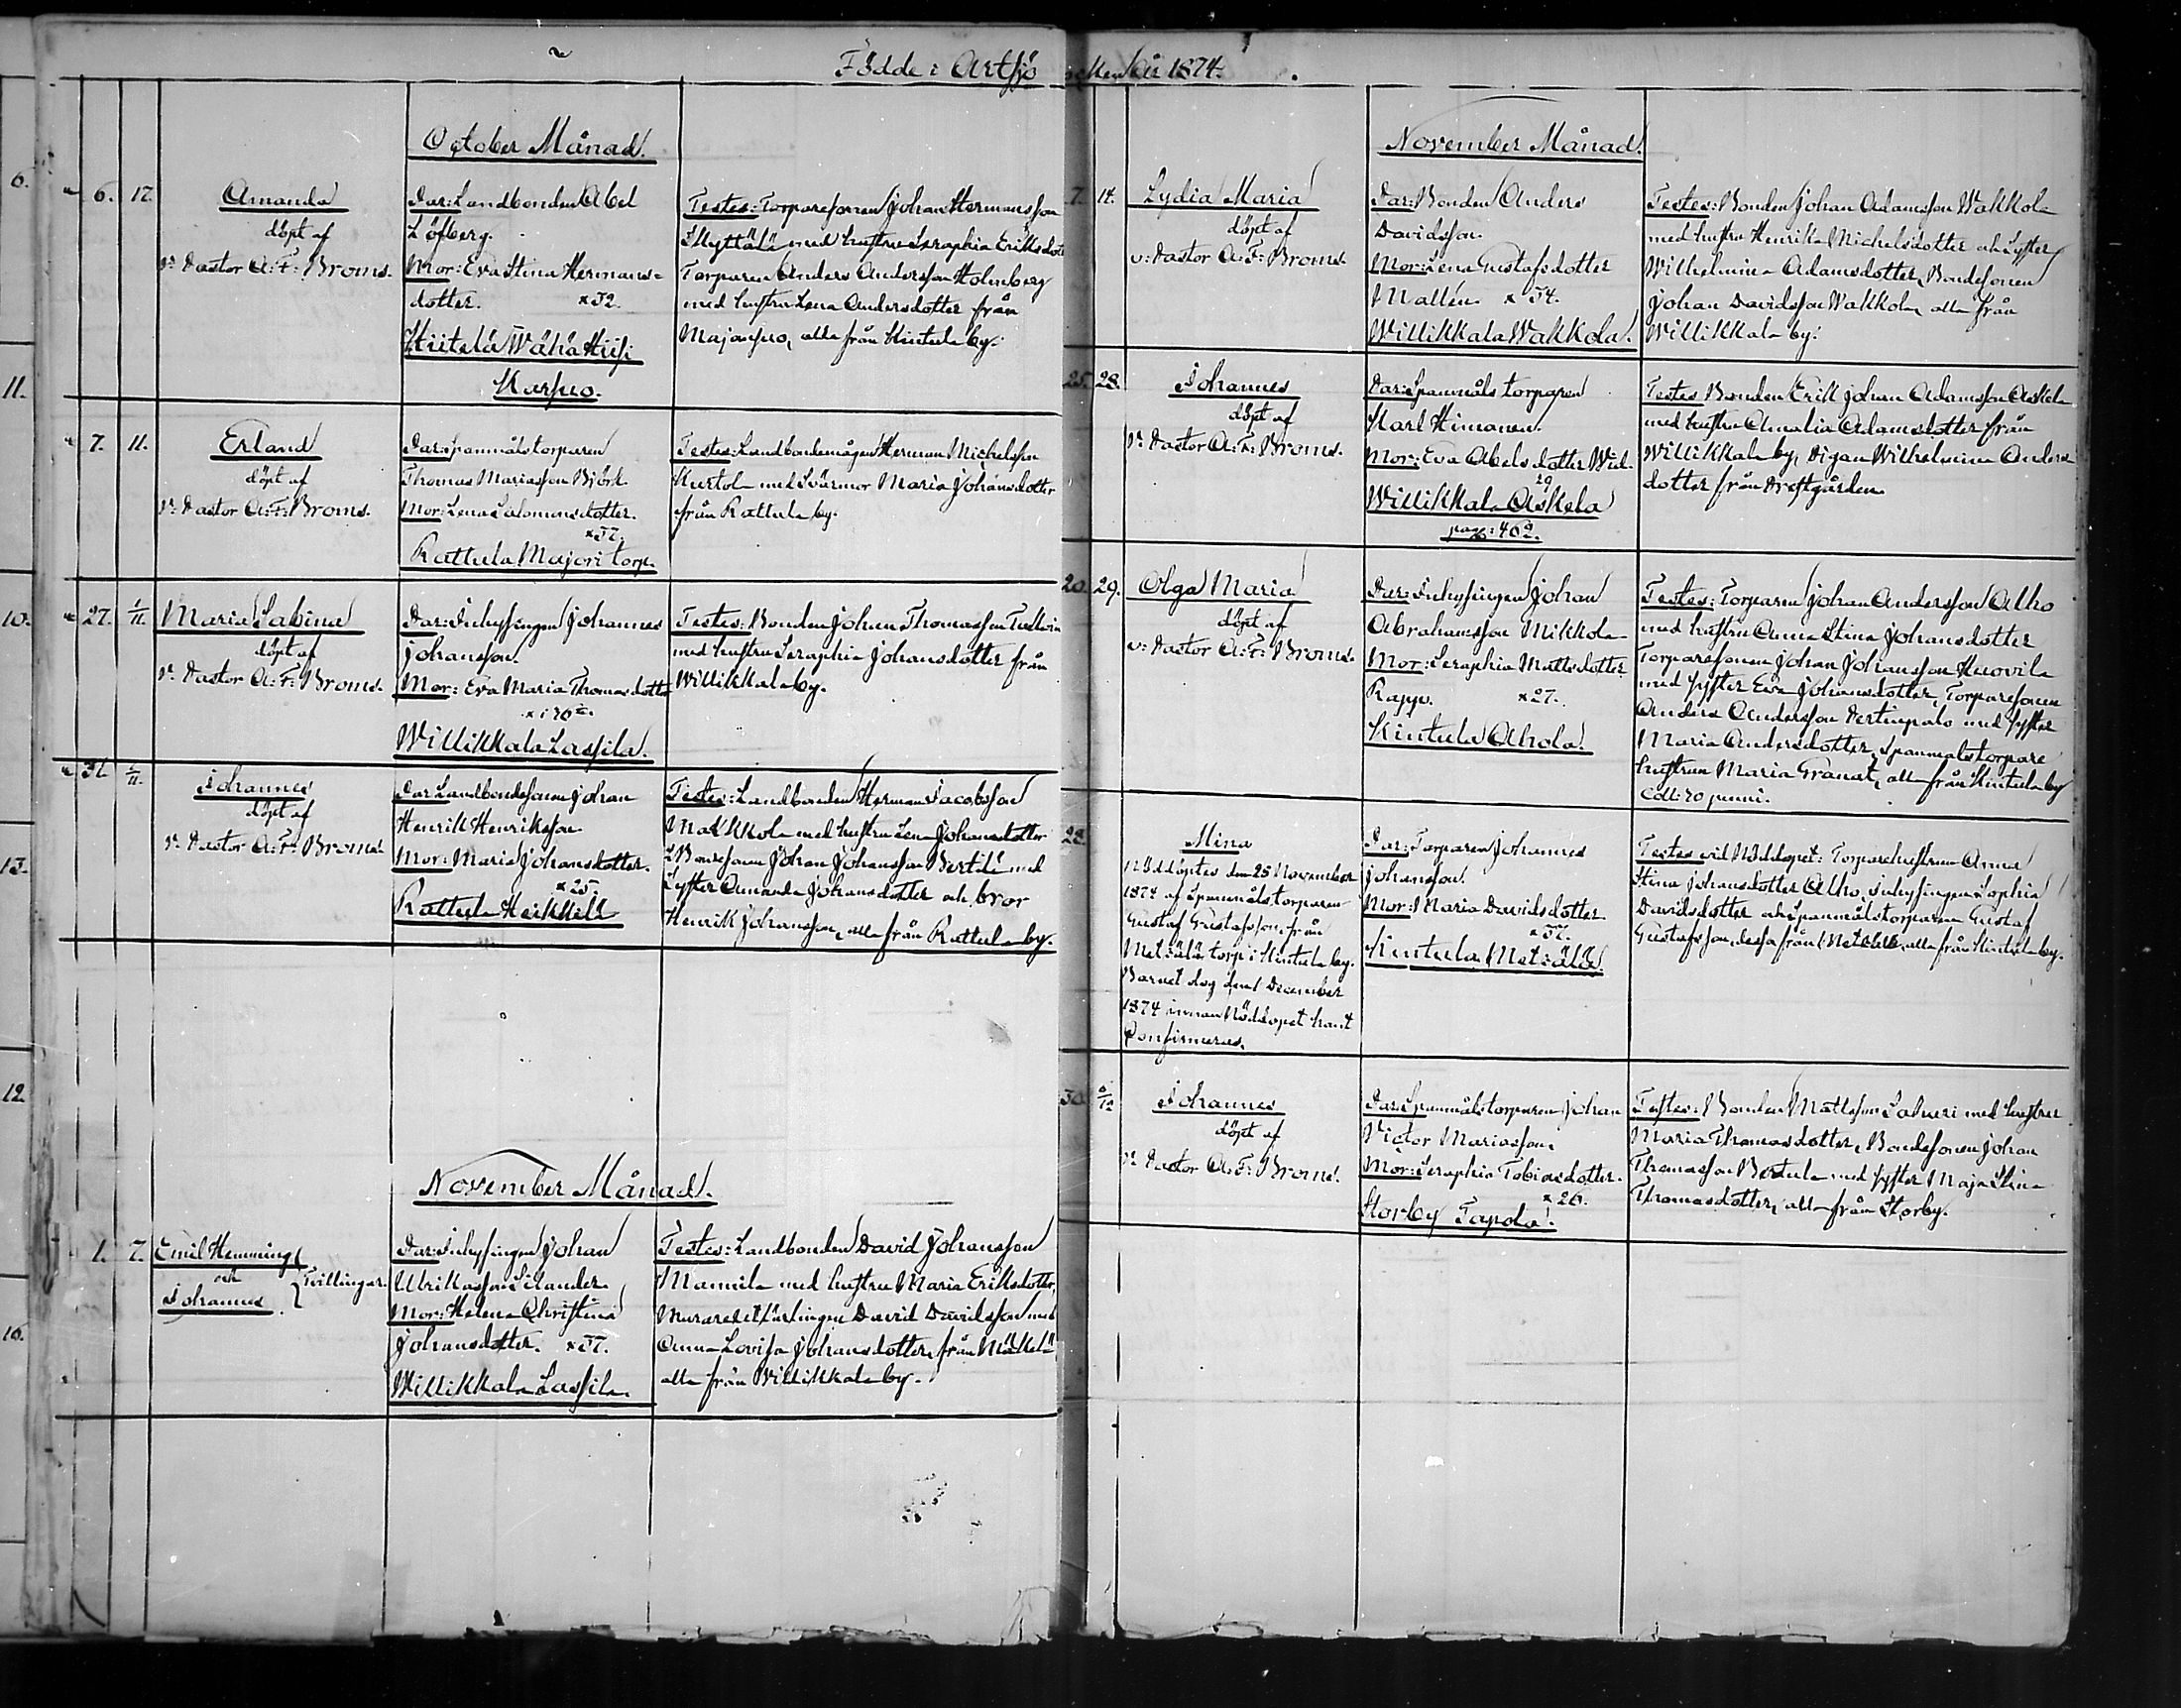 Födde i Artsjö socken År 1874.
October Månad.
6. 17.
Amanda
döpt af
v: Pastor A: F: Broms.
Par: Landbonden Abel
Löfberg.
Mor: Eva Stina Hermans=
dotter. x 32.
Hiitelä Wähä Hiisi
Karpio.
Testes: Torparesonen Johan Hermansson
med hustru Seraphia Eriksdotter
Torparen Anders Andersson Holmberg
med hustru Lena Andersdotter från
Majansuo, alla från Kintula by.
7. 11.
Erland
döpt af
v: Pastor A: F: Broms.
Par: Spannmålstorparen
Thomas Mariasson Björk
Mor: Lena Salomonsdotter.
x 37.
Rattula Majori torp.
Testes: Landbondemågen Herman Michelsson
Kurtola med Svärmor Maria Johansdotter
från Rattula by.
27. 1/11.
Maria Sabina
döpt af
v: Pastor A: F: Broms.
Par: Inhysingen Johannes
Johansson.
Mor: Eva Maria Thomasdotter
Willikkala Lassila.
Testes: Bonden Johan Thomasson
med hustru Seraphia Johansdotter från
Willikkala by.
31. /11.
Johannes
döpt af
v: Pastor A: F: Broms.
Par: Landbondesonen Johan
Henrik Henriksson
Mor: Maria Johansdotter.
x 25.
Rattula Heikkilä
Testes: Landbonden Herman Jacobsson
Makkkola med hustru Lena Johansdotter
Bondesonen Johan Johansson Bertilä med
Syster Amanda Johansdotter och bror
Henrik Johansson, alla från Rattula by.
November Månad.
1. 7.
Emil Hemming
och
Johannes
Tvillingar.
Par: Inhysingen Johan
Ulrikasson Silander
Mor: Helena Christina
Johansdotter. x 37.
Willikkala Lassila.
Testes: Landbonden David Johansson
Mannila med hustru Maria Eriksdotter,
Murarelärlingen David Davidsson med
Anna Lovisa Johansdotter, från Mäkelä
alla från Willikkala by.
November Månad.
7. 14.
Lydia Maria
döpt af
v: Pastor A: F: Broms.
Par: Bonden Anders
Davidsson.
Mor: Lena Gustafsdotter
Mallén. x 34.
Willikkala Wakkola.
Testes: Bonden Johan Adamsson Wakkola
med hustru Henrika Michelsdotter och Syster
Wilhelmina Adamsdotter, Bondesonen
Johan Davidsson Wakkola, alla från
Willikkala by.
25. 28.
Johannes
döpt af
v: Pastor A: F: Broms.
Par: Spannmåls torparen
Karl Himanen.
Mor: Eva Abelsdotter
29
Willikkala Askela
pag: 402.
Testes Bonden Erik Johan Adamsson Askela
med hustru Amalia Adamsdotter från
Willikkala by, Pigan Wilhelmina Anders
dotter från Prestgården.
20. 29.
Olga Maria
döpt af
v: Pastor A: F: Broms.
Par: Inhysingen Johan
Abrahamsson Mikkola
Mor: Seraphia Mattsdotter
Rapp. x 27.
Kintula Ahola.
Testes: Torparen Johan Andersson Alho
med hustru Anna Stina Johansdotter
Torparesonen Johan Johansson Huovila
med syster Eva Johansdotter, Torparesonen
Anders Andersson Pertinpalo med syster
Maria Andersdotter, Spannmålstorpare
hustrun Maria Granat, alla från Kintula by
Coll: 20 penni.
22.
Mina
Nöddöptes den 25 November
1874 af Spannmålstorparen
Gustaf Gustafsson från
Metsälä torp i Kintula by.
Barnet dog den 1 December
1874 innan Nöddopet hant
Confirmeras.
Par: Torparen Johannes
Johansson.
Mor: Maria Davidsdotter.
x 37.
Kintula Metsälä
Testes vid Nöddopet: Torparehustrun Anna
Stina Johansdotter Alho, inhysingen Sophia
Davidsdotter och Spannmålstorparen Gustaf
Gustafsson, dessa från Metsälä, alla från Kintula by.
30. 6/12
Johannes
döpt af
v: Pastor A: F: Broms.
Par: Spannmålstorparen Johan
Victor Mariasson.
Mor: Seraphia Tobiasdotter.
x 26.
Storby Tapola.
Testes: Bonden Mattsson Salmeri med hustru
Maria Thomasdotter, Bondesonen Johan
Thomasson med syster Maja Stina
Thomasdotter, alla från Storby.
6.
11.
10.
13.
12.
16.